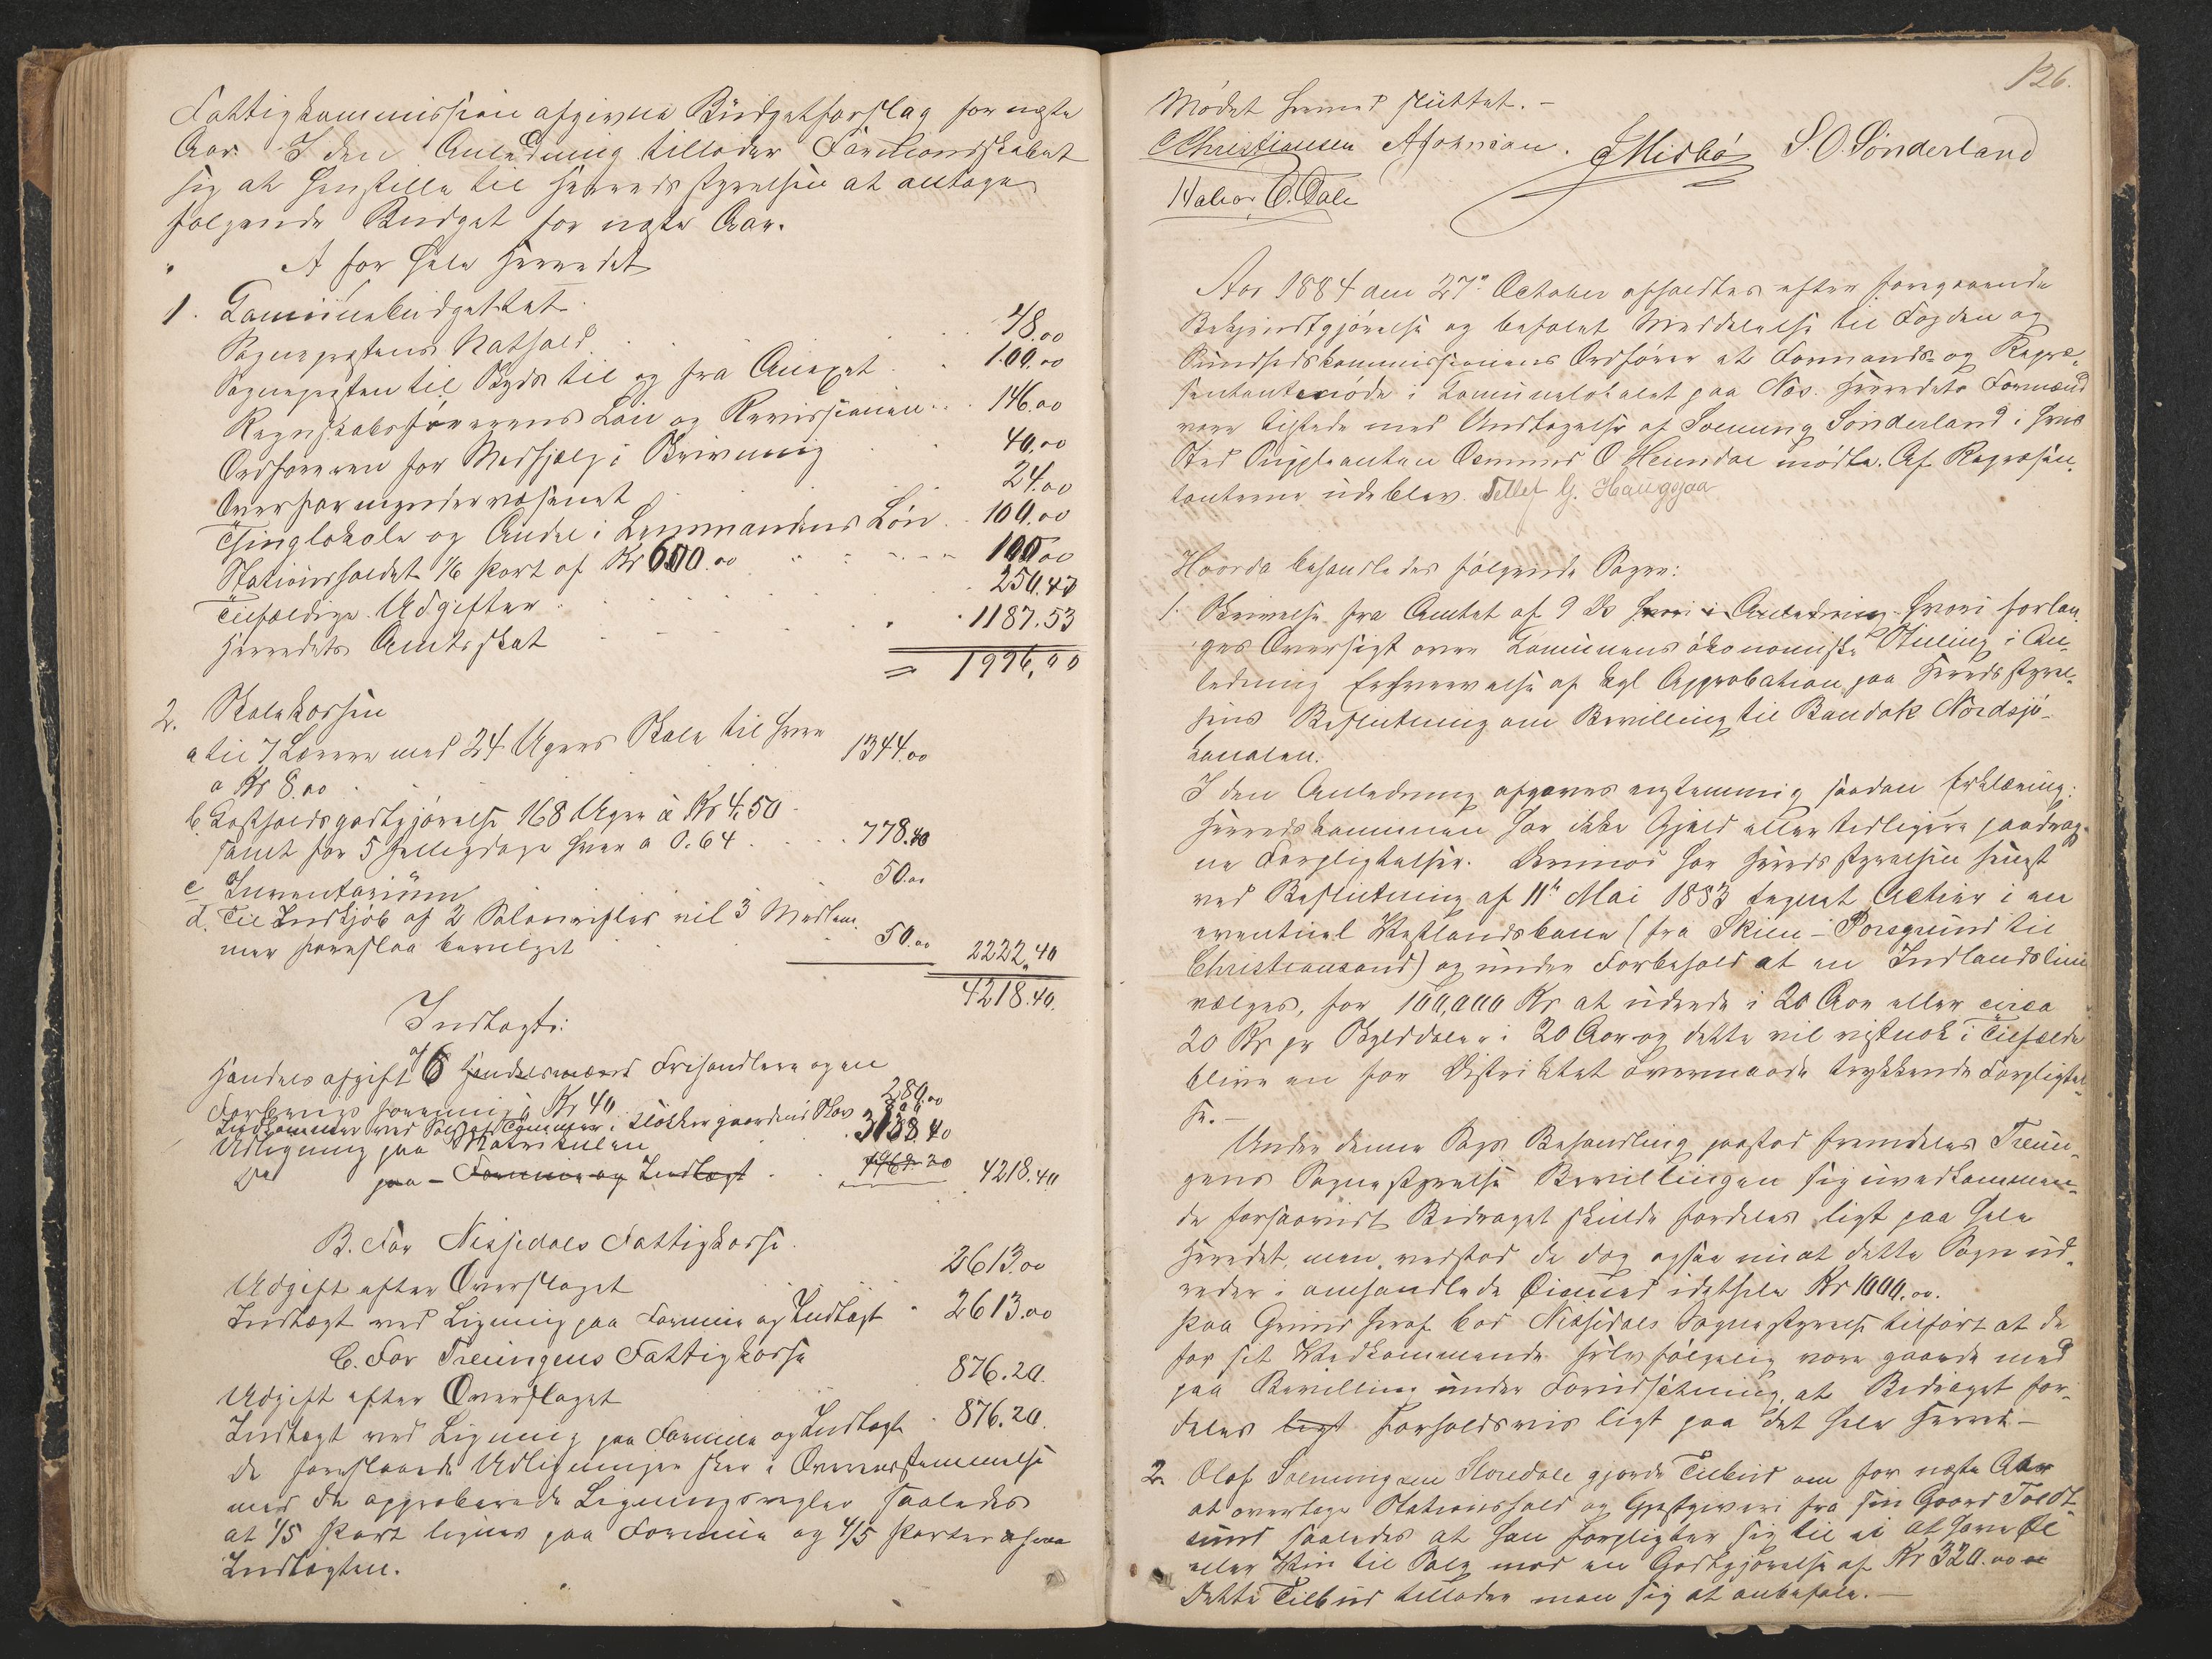 Fattigkommission afgivne Budgetforslag for næste
Aar. I den Anledning tillader Formandskabet
sig at henstille til Herredsstyrelsen at antage
følgende Budget for næste Aar.
A for hele Herredet
1. Communebudgettet.
Sognepræstens Nathold . . . 48.00
Sognepræsten til Skyds til og fra Anexet . . 100.00
Regnskabsførerens Løn og Revisionen . . . 146.00
Ordføreren for Medhjælp i Skrivning . 40,00
Overformyndervæsenet 24.00
Thinglokale og Andel i Lensmandens Løn . . 100.00
Stationsholdet 1/6 Part af Kr 600.00 . . . 100.00
Tilfældige Udgifter . . . 250.47
Herredets Amtsskat . . . 1187.53
= 1996,00
2. Skolekassen
a til 7 Lærere med 24 Ugers Skole til hver
a Kr 8.00 . 1344.00
b. Kostholdsgodtgjørelse 168 Uger à Kr 4,50
samt for 5 Helligdage hver a 0.64 . . . 778.40
c Inventarium 50.00
d. Til Indkjøb af 2 Salonrifler vil 3 Medlem-
mer foreslaa bevilget . . 50.00 2222,40
4218.40.
Indtægt:
Handelsafgift af 6 Handelsmænd Frihandlere og en
Forbrugsforening à Kr 40 280.00
Indkommer ved Salg af Tømmer i Klokkergaardens Skov 800
Udligning paa Matrikulen . 3138.40
Do paa - Formue og Indtægt . . 4218.40
B. For Nissedals Fattigkasse.
Udgift efter Overslaget 2613.00
Indtægt ved Ligning paa Formue og Indtægt . 2613.00
C. For Treungens Fattigkasse
Udgift efter Overslaget 876.20.
Indtægt ved Ligning paa Formue og Indtægt . 876.20.
De foreslaaede Udligninger sker i Overensstemmelse
med de approberede Ligningsregler saaledes
at 1/5 Part lignes paa Formue og 4/5 Parter paa
Indtægten.
126.
Mødet hermed sluttet. -
C Christiansen A Johnsen. J Misbø S. O. Sønderland
Halvor O. Dale
Aar 1884 den 27de October afholdtes efter foregaaende
Bekjendtgjørelse og befalet Meddelelse til Fogden og
Sundhedskommissionens Ordfører et Formands- og Repræ-
sentantmøde i Communelokalet paa Næs. Herredets Formænd
vare tilstede med Undtagelse af Solmung Sønderland i hvis
Sted Suppleanten Osmund O Heimdal mødte. Af Repræsen-
tanterne udeblev Tellef G. Hauggaa
Hvorda behandledes følgende Sager:
1. Skrivelse fra Amtet af 9 ds hvori i Anledning hvori forlan-
ges Oversigt over Communens økonomiske Stilling i An-
ledning Erhvervelse af kgl Approbation paa Herredsstyrel-
sens Beslutning om Bevilling til Bandak Nordsjø-
kanalen.
I den Anledning afgaves enstemmig saadan Erklæring:
Herredskommunen har ikke Gjæld eller tidligere paadrag-
ne Forpligtelser. Derimod har Herredsstyrelsen senest
ved Beslutning af 11te Mai 1883 tegnet Actier i en
eventuel Vestlandsbane (fra Skien - Porsgrund til
Christiansand) og under Forbehold at en Indlandslinie
vælges, for 100,000 Kr at udrede i 20 Aar eller circa
20 Kr pr Skylddaler i 20 Aar og dette vil vistnok i Tilfælde
blive en for Distriktet overmaade trykkende Forpligtel-
se. -
Under denne Sags Behandling paastod fremdeles Treun-
gens Sognestyrelse Bevillingen sig uvedkommen-
de forsaavidt Bidraget skulde fordeles ligt paa hele
Herredet, men vedstod de dog ogsaa nu at dette Sogn ud-
reder i omhandlede Øiemed idethele Kr 1000,00.
Paa Grund heraf bad Nissedals Sognestyrelse tilført at de
for sit Vedkommende selvfølgelig vare gaaede med
paa Bevilling under Forudsætning, at Bidraget for-
deles ligt forholdsvis ligt paa det hele Herred -
2. Olaf Solmungsen Kloredale gjorde Tilbud om for næste Aar
at overtage Stationshold og Gjestgiveri fra sin Gaard Tveit-
sund saaledes at han forpligter sig til ei at have Øl
eller Vin til Salg mod en Godtgjørelse af Kr 320.00
Dette Tilbud tillader man sig at anbefale. -